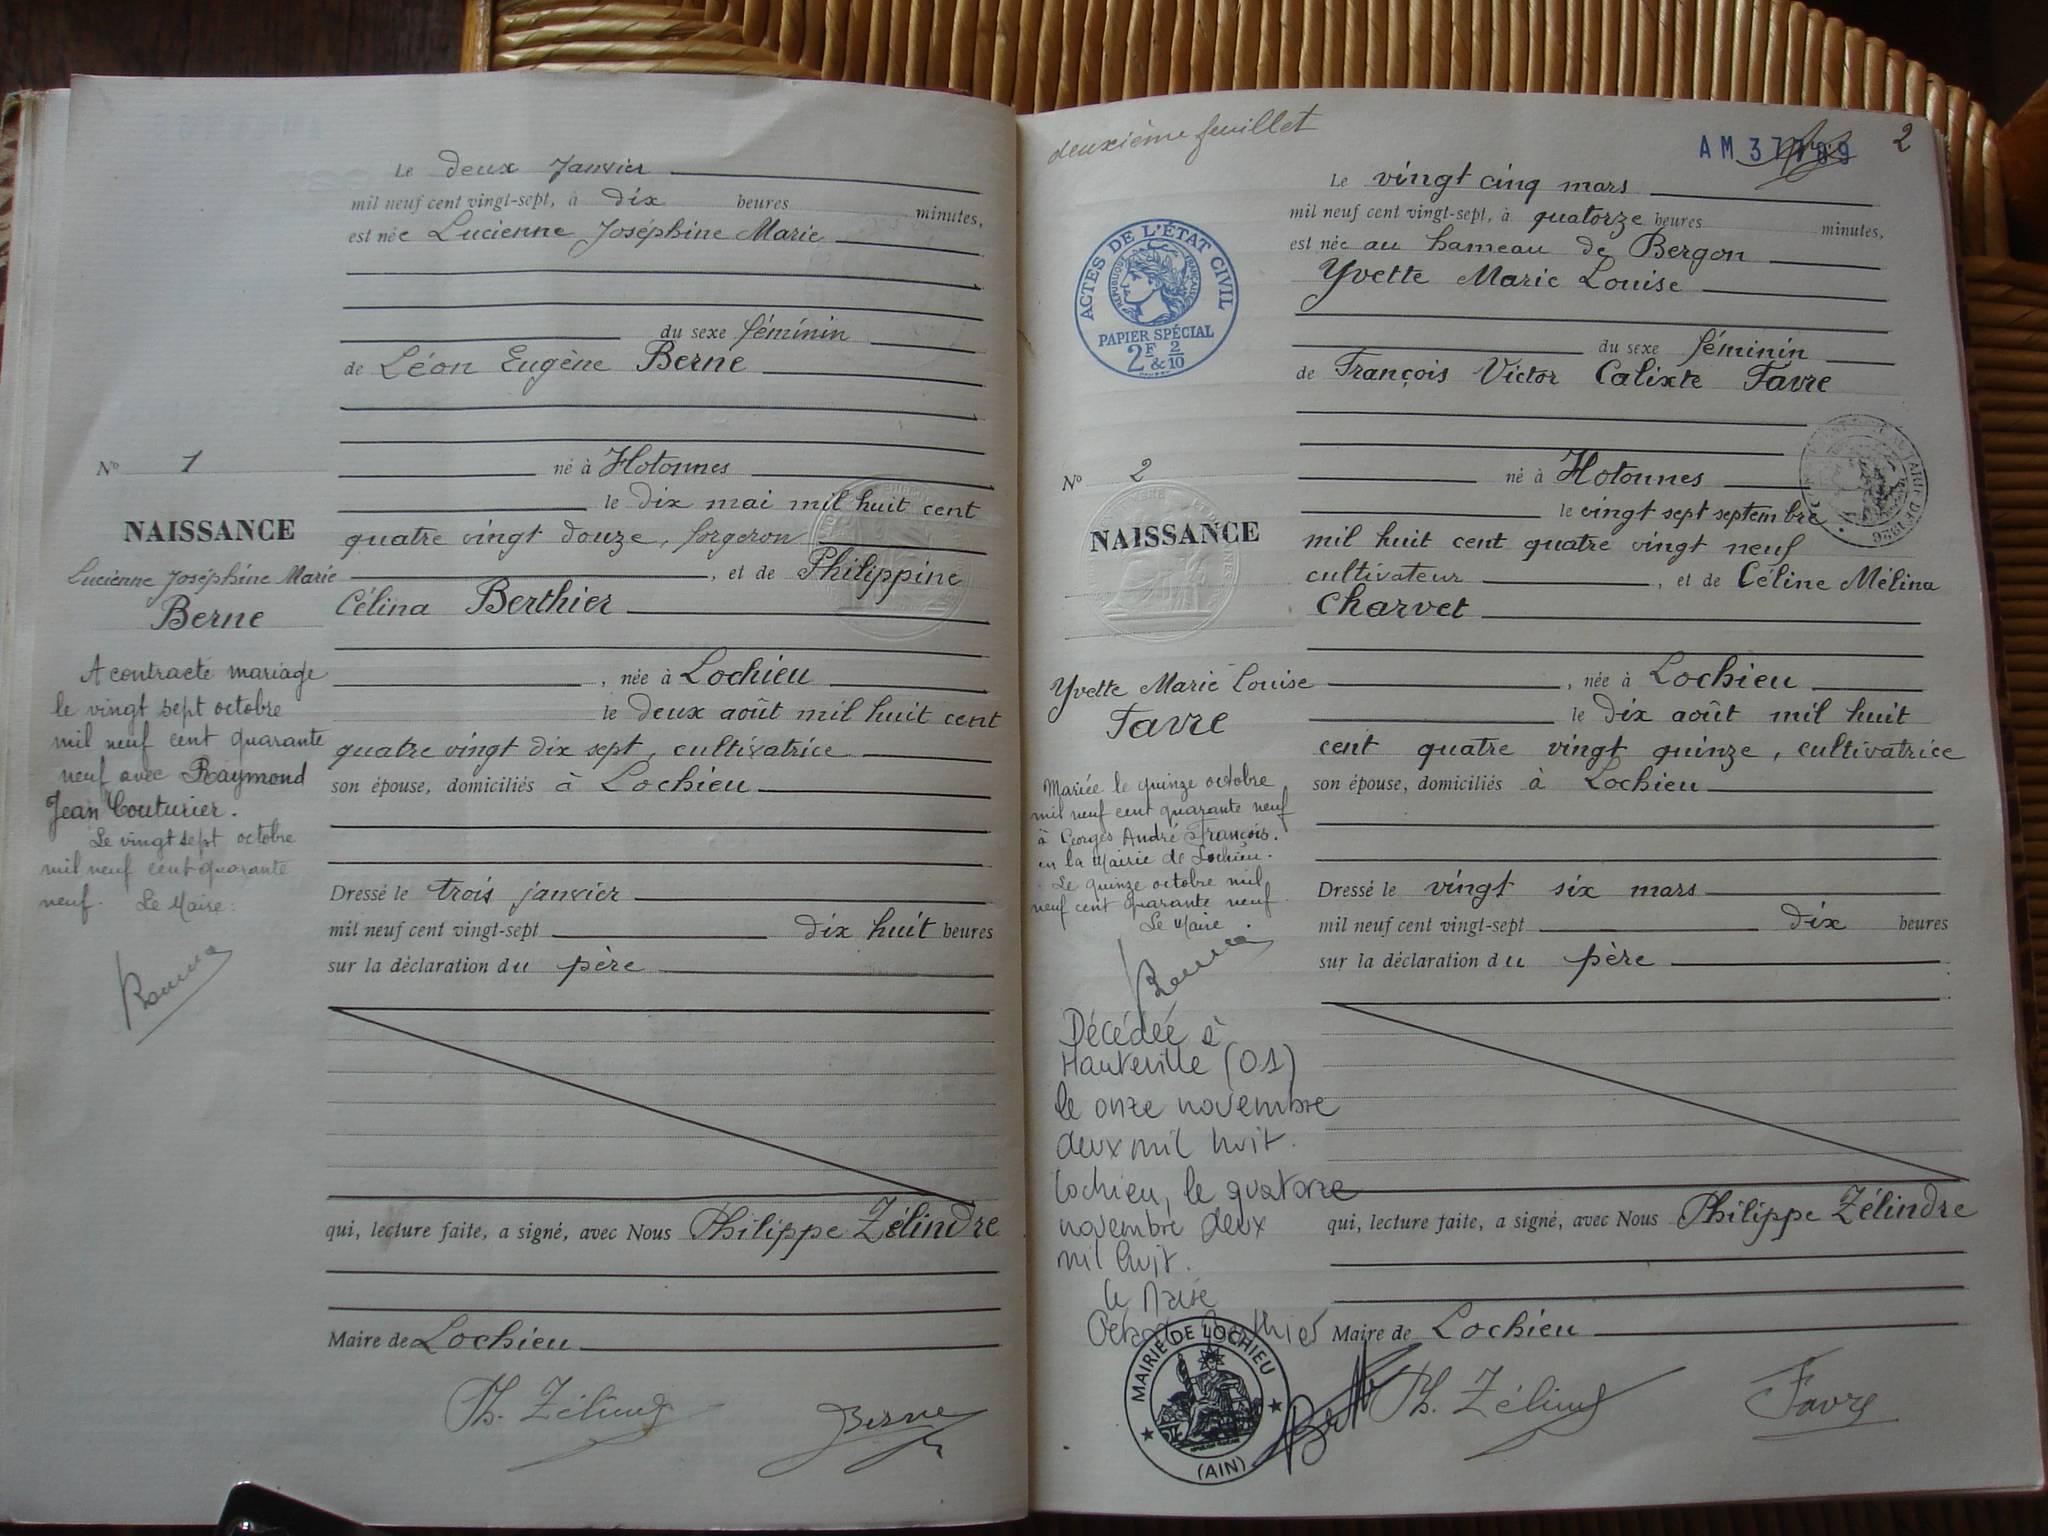 Le deux Janvier
mil neuf cent vingt-sept, à dix heures minutes,
est née Lucienne Joséphine Marie
du sexe féminin
de Léon Eugène Berne
né à Hotonnes
le dix mai mil huit cent
quatre vingt douze, forgeron
, et de Philippine
Célina Berthier
, née à Lochieu
le deux août mil huit cent
quatre vingt dix sept, cultivatrice
son épouse, domiciliés à Lochieu
Dressé le trois janvier
mil neuf cent vingt-sept dix huit heures
sur la déclaration du père
qui, lecture faite, a signé, avec Nous Philippe Zélindre
Maire de Lochieu
Ph. Zélind
Berne
No 1
NAISSANCE
Lucienne Joséphine Marie
Berne
A contracté mariage
le vingt sept octobre
mil neuf cent quarante
neuf avec Raymond
Jean Couturier.
Le vingt sept octobre
mil neuf cent quarante
neuf. Le Maire:
deuxième feuillet
AM 37
2
ACTES DE L'ÉTAT CIVIL
RÉPUBLIQUE FRANÇAISE
PAPIER SPÉCIAL
2F & 2/10
Le vingt cinq mars
mil neuf cent vingt-sept, à quatorze heures minutes,
est née au hameau de Bergon
Yvette Marie Louise
du sexe féminin
de François Victor Calixte Favre
né à Hotonnes
le vingt sept septembre
mil huit cent quatre vingt neuf
cultivateur , et de Céline Mélina
Charvet
, née à Lochieu
le dix août mil huit
cent quatre vingt quinze, cultivatrice
son épouse, domiciliés à Lochieu
Dressé le vingt six mars
mil neuf cent vingt-sept dix heures
sur la déclaration du père
qui, lecture faite, a signé, avec Nous Philippe Zélindre
Maire de Lochieu
Ph. Zélind
Favre
No 2
NAISSANCE
Yvette Marie Louise
Favre
Mariée le quinze octobre
mil neuf cent quarante neuf
à Georges André François.
en la Mairie de Lochieu.
Le quinze octobre mil
neuf cent quarante neuf
Le Maire.
Décédée à
Hauteville (01)
le onze novembre
deux mil huit.
Lochieu, le quatorze
novembre deux
mil huit.
le Maire
MAIRIE DE LOCHIEU
(AIN)